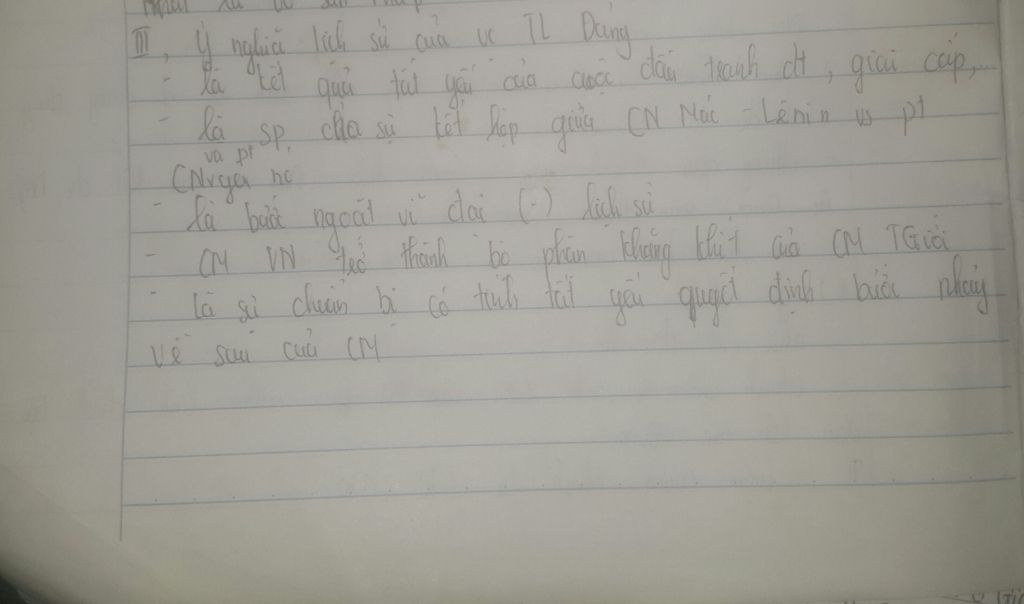 III, Ý nghĩa lịch sử của vc TL Đảng
- là kết quả tất yếu của cuộc đấu tranh dt, giai cấp,...
- là sp của sự kết hợp giữa CN Mác - Lênin vs pt
và pt
CN yêu nc
- là bước ngoặt vĩ đại (-) lịch sử
- CM VN trở thành bộ phận khăng khít của CM TGiới
- là sự chuẩn bị có tính tất yếu quyết định bước nhảy
về sau của CM